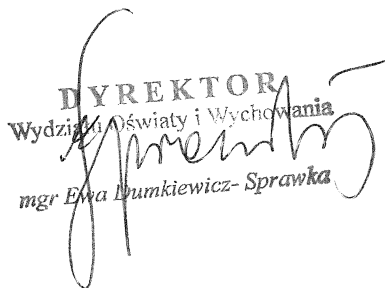 DYREKTOR
Wydziału Oświaty i Wychowania
mgr Ewa Dumkiewicz- Sprawka